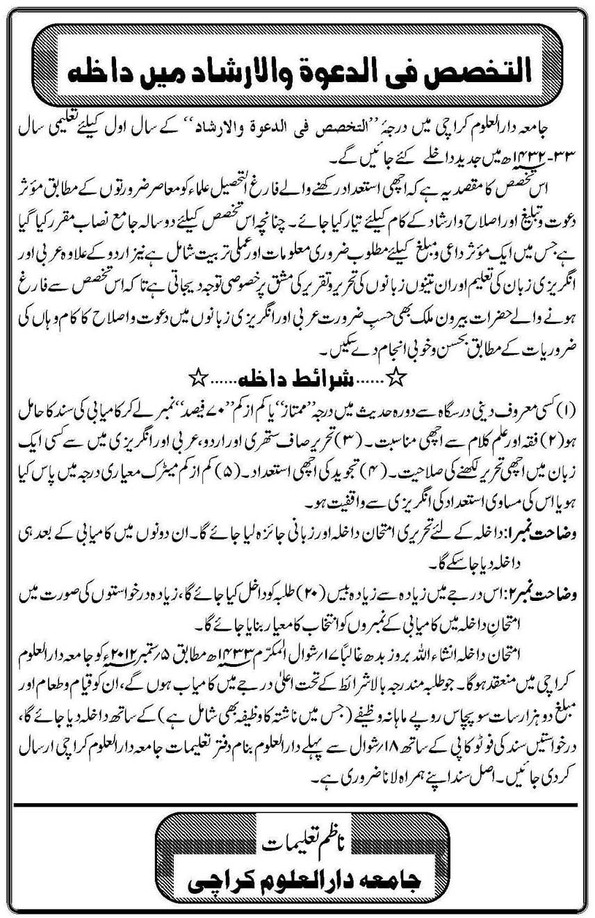 التخصص فی الدعوة والارشاد میں داخلہ
جامعہ دارالعلوم کراچی میں درجۂ ’’التخصص فی الدعوة والارشاد‘‘ کے سال اول کیلئے تعلیمی سال
۳۳-۱۴۳۲ھ میں جدید داخلے کئے جائیں گے۔
اس تخصص کا مقصد یہ ہے کہ اچھی استعداد رکھنے والے فارغ التحصیل علماء کو معاصر ضرورتوں کے مطابق مؤثر
دعوت و تبلیغ اور اصلاح و ارشاد کے کام کیلئے تیار کیا جائے۔ چنانچہ اس تخصص کیلئے دو سالہ جامع نصاب مقرر کیا گیا
ہے جس میں ایک مؤثر داعی و مبلغ کیلئے مطلوب ضروری معلومات اور عملی تربیت شامل ہے نیز اردو کے علاوہ عربی اور
انگریزی زبان کی تعلیم اور ان تینوں زبانوں کی تحریر و تقریر کی مشق پر خصوصی توجہ دیجاتی ہے تاکہ اس تخصص سے فارغ
ہونے والے حضرات بیرون ملک بھی حسبِ ضرورت عربی اور انگریزی زبانوں میں دعوت و اصلاح کا کام وہاں کی
ضروریات کے مطابق بحسن و خوبی انجام دے سکیں۔
☆......شرائط داخلہ......☆
(۱) کسی معروف دینی درسگاہ سے دورہ حدیث میں درجہ ’’ممتاز‘‘ یا کم از کم ’’۷۰ فیصد‘‘ نمبر لے کر کامیابی کی سند کا حامل
ہو (۲) فقہ اور علم کلام سے اچھی مناسبت۔ (۳) تحریر صاف ستھری اور اردو، عربی اور انگریزی میں سے کسی ایک
زبان میں اچھی تحریر لکھنے کی صلاحیت۔ (۴) تجوید کی اچھی استعداد۔ (۵) کم از کم میٹرک معیاری درجہ میں پاس کیا
ہو یا اس کی مساوی استعداد کی انگریزی سے واقفیت ہو۔
وضاحت نمبر۱: داخلہ کے لئے تحریری امتحان داخلہ اور زبانی جائزہ لیا جائے گا۔ ان دونوں میں کامیابی کے بعد ہی
داخلہ دیا جاسکے گا۔
وضاحت نمبر۲: اس درجے میں زیادہ سے زیادہ بیس (۲۰) طلبہ کو داخل کیا جائے گا، زیادہ درخواستوں کی صورت میں
امتحانِ داخلہ میں کامیابی کے نمبروں کو انتخاب کا معیار بنایا جائے گا۔
امتحان داخلہ انشاء اللہ بروز بدھ غالباً ۱۷/شوال المکرّم ۱۴۳۳ھ مطابق ۵/ستمبر ۲۰۱۲ء کو جامعہ دارالعلوم
کراچی میں منعقد ہوگا۔ جو طلبہ مندرجہ بالا شرائط کے تحت اعلیٰ درجے میں کامیاب ہوں گے، ان کو قیام و طعام اور
مبلغ دو ہزار سات سو پچاس روپے ماہانہ وظیفے (جس میں ناشتہ کا وظیفہ بھی شامل ہے) کے ساتھ داخلہ دیا جائے گا،
درخواستیں سند کی فوٹو کاپی کے ساتھ ۱۸/شوال سے پہلے دارالعلوم بنام دفتر تعلیمات جامعہ دارالعلوم کراچی ارسال
کردی جائیں۔ اصل سند اپنے ہمراہ لانا ضروری ہے۔
ناظم تعلیمات
جامعہ دارالعلوم کراچی